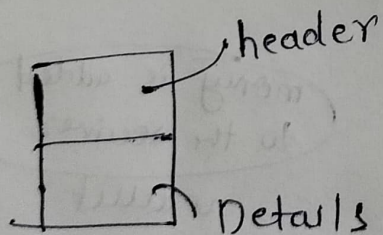 header
Details